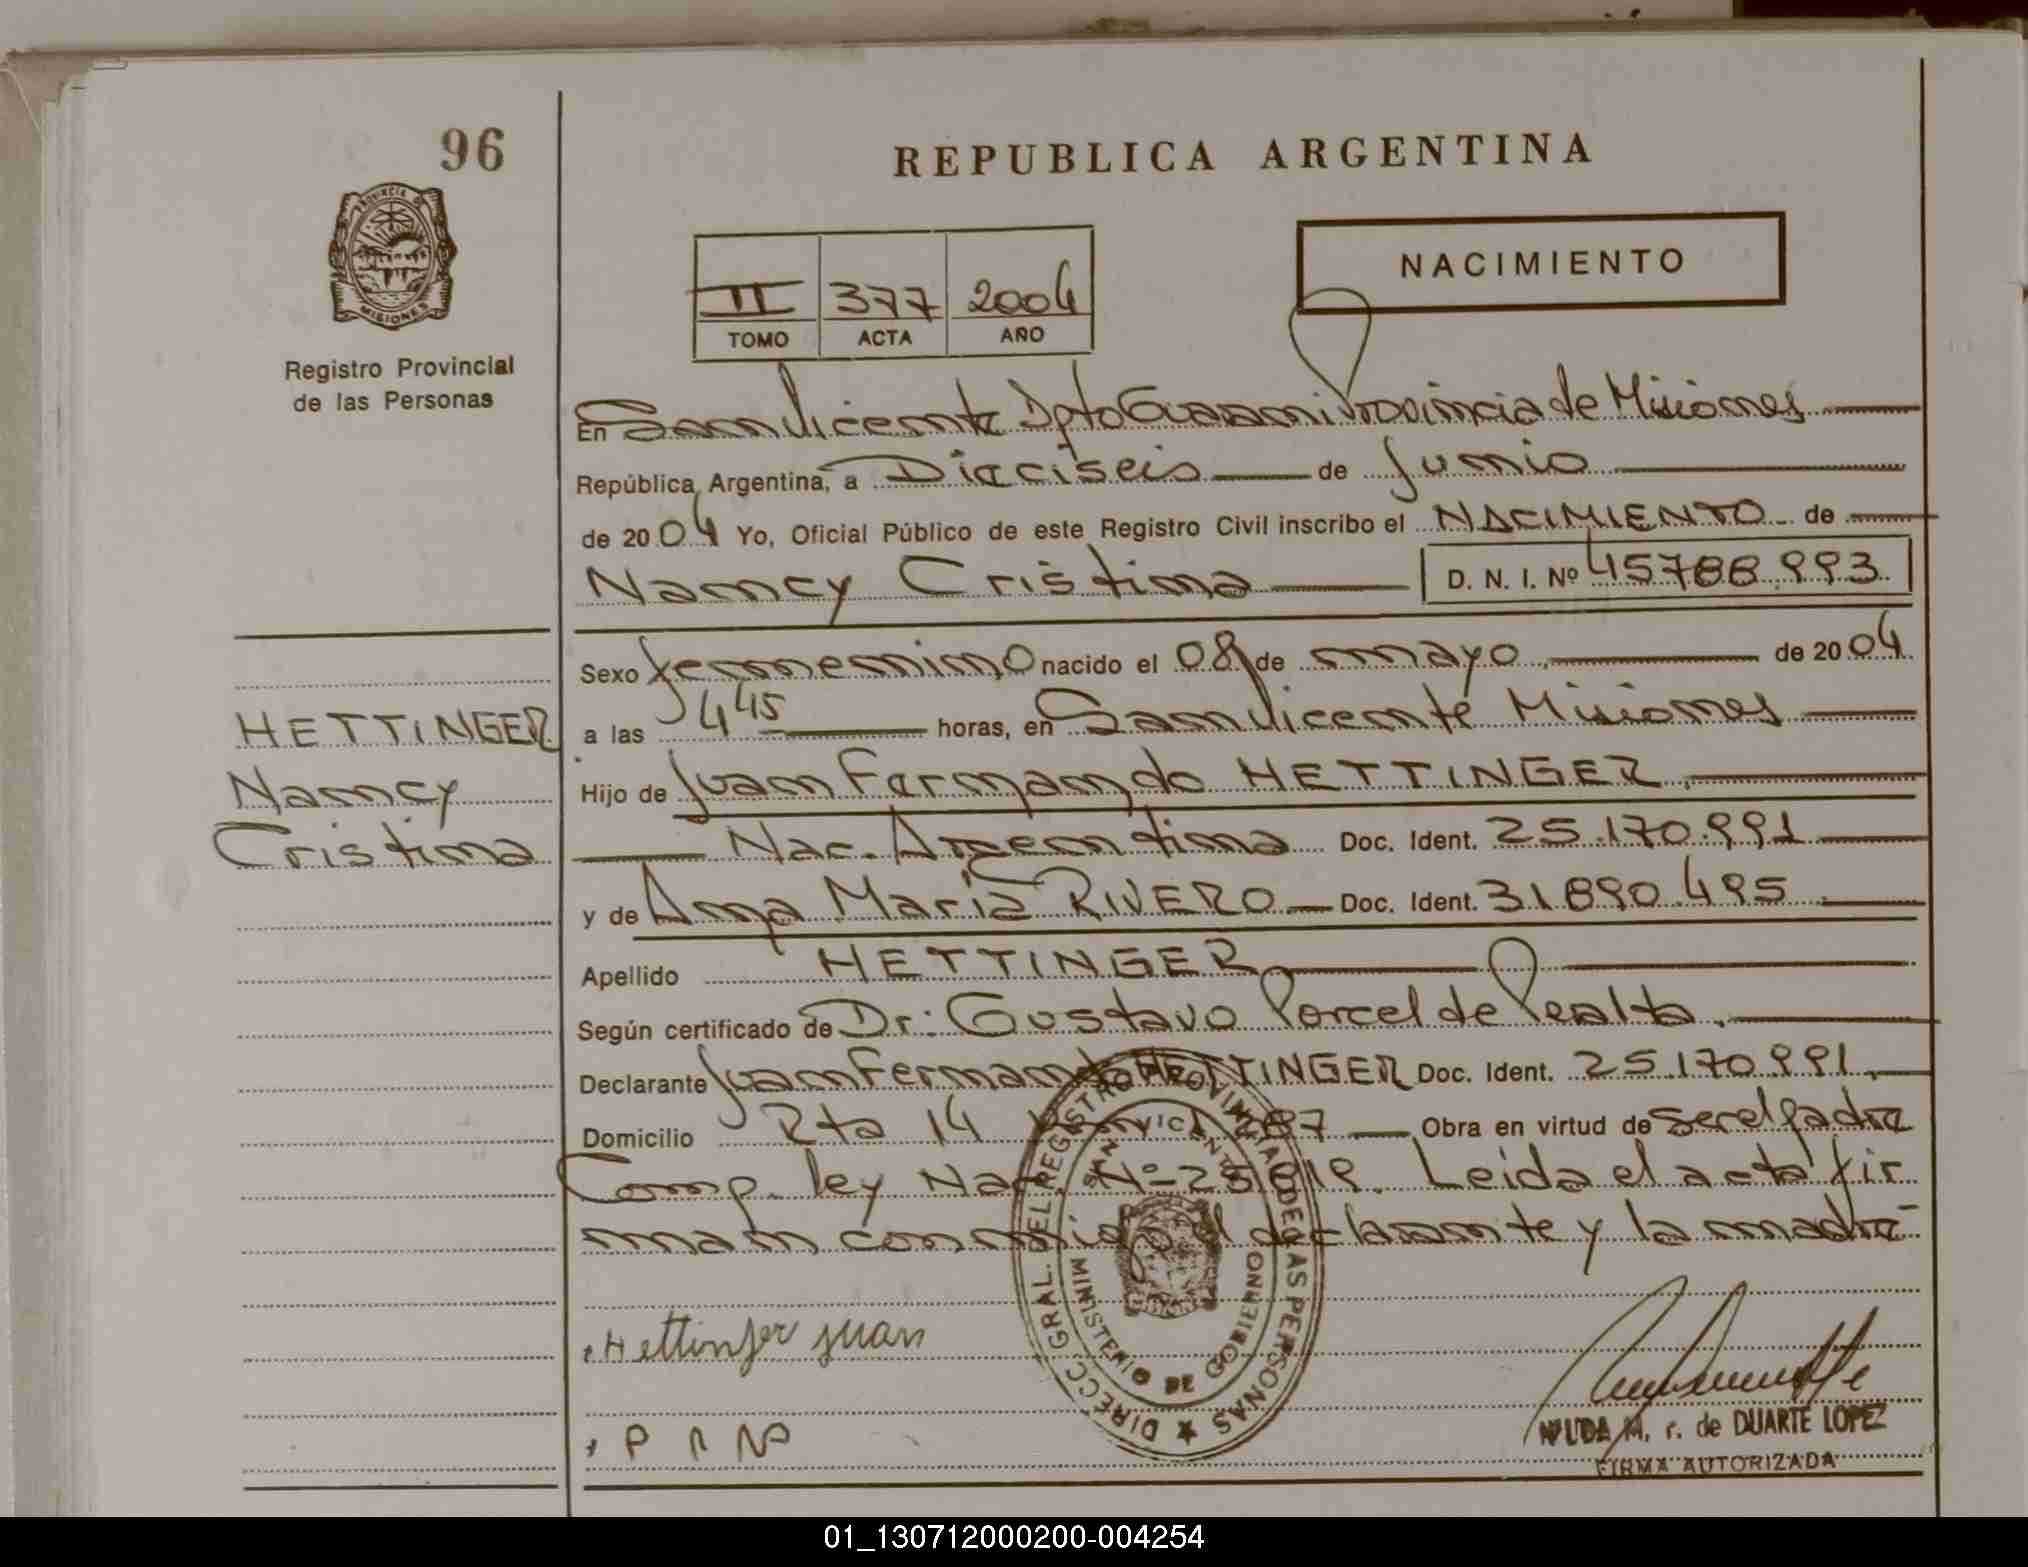 96
REPUBLICA ARGENTINA
PROVINCIA DE
MISIONES
Registro Provincial
de las Personas
NACIMIENTO
II 377 2004
TOMO ACTA AÑO
En San Vicente Dpto Guarani Provincia de Misiones
República Argentina, a Dieciseis de Junio
de 2004 Yo, Oficial Público de este Registro Civil inscribo el NACIMIENTO de
Nancy Cristina D. N. I. Nº 45788.993
Sexo femenino nacido el 08 de mayo de 2004
HETTINGER
Nancy
Cristina
a las 4 45 horas, en San Vicente Misiones
Hijo de Juan Fernando HETTINGER
Nac. Argentina Doc. Ident. 25.170.991
y de Ana Maria RIVERO Doc. Ident. 31890.495
Apellido HETTINGER
Según certificado de Dr: Gustavo Porcel de Peralta.
Declarante Juan Fernando HETTINGER Doc. Ident. 25.170.991.
Domicilio Rta 14 Obra en virtud de ser el padre
Comp. ley Nac. Nº 25.819. Leida el acta fir
man conmigo el declarante y la madre
Hettinger juan
DIRECC. GRAL. DEL REGISTRO PROVINCIAL DE LAS PERSONAS
SAN VICENTE
MINISTERIO DE GOBIERNO
M. r. de DUARTE LOPEZ
FIRMA AUTORIZADA
01_130712000200-004254